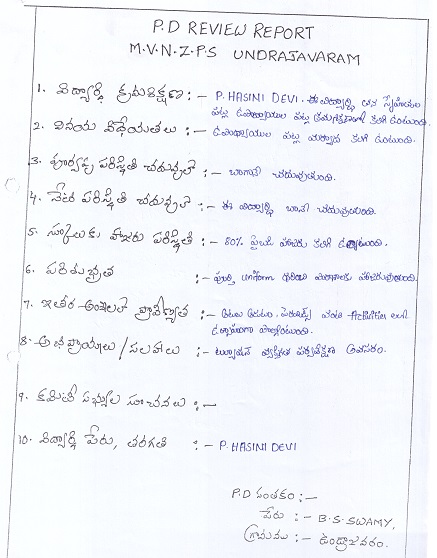 P.D REVIEW REPORT
M.V.N.Z.P.S UNDRAJAVARAM
1. విద్యార్థి క్రమశిక్షణ :- P. HASINI DEVI. ఈ విద్యార్థి తన స్నేహితుల
పట్ల ఉపాధ్యాయుల పట్ల క్రమశిక్షణతో కలిగి ఉంటుంది.
2. వినయ విధేయతలు :- ఉపాధ్యాయుల పట్ల మర్యాద కలిగి ఉంటుంది.
3. పూర్వపు పరిస్థితి చదువులో :- బాగానే చదువుతుంది.
4. నేటి పరిస్థితి చదువులో :- ఈ విద్యార్థి బాగా చదువుతుంది.
5. స్కూలుకు హాజరు పరిస్థితి :- 80% పైబడి హాజరు కలిగి ఉంటుంది.
6. పరిశుభ్రత :- పూర్తి uniform ధరించి హాజరువుతుంది.
7. ఇతర అంశాలలో ప్రావీణ్యత :- ఆటలు ఆడటం, వంటి Activities లలో
ఉత్సాహంగా పాల్గొంటుంది.
8. అభిప్రాయాలు/సలహాలు :- ట్యూషన్ పర్యవేక్షణ అవసరం.
9. కమిటీ సభ్యుల సూచనలు :-
10. విద్యార్థి పేరు, తరగతి :- P. HASINI DEVI
P.D సంతకం :-
పేరు :- B.S. SWAMY,
గ్రామము :- ఉండ్రాజవరం.